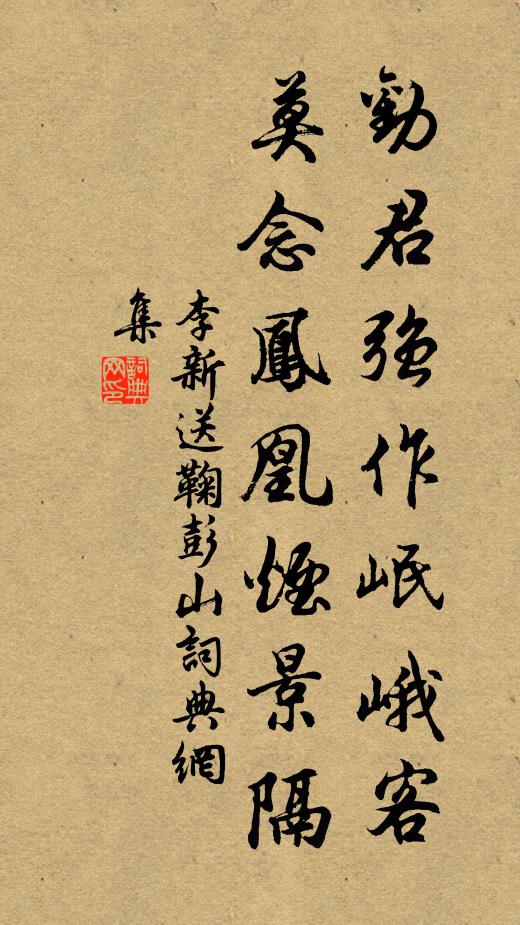 勸君強作岷峨客
莫念鳳凰煙景隔
李新送鞠彭山詞典網
集
詞典
网印